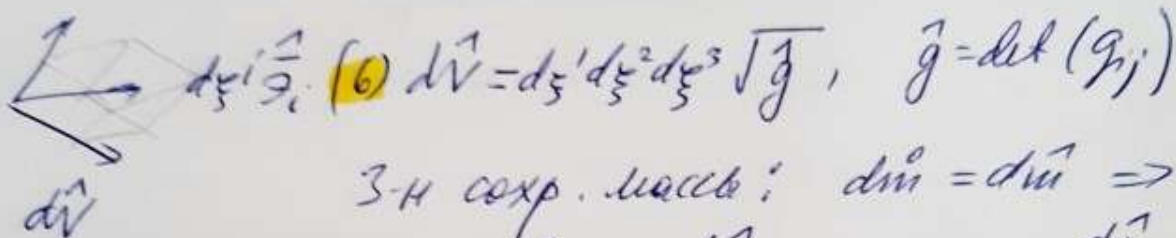 dξⁱ э̂ᵢ (6) dV̂ = dξ¹dξ²dξ³ √ĝ, ĝ = det (ĝᵢⱼ)
З-н сохр. массы: dm̊ = dm̂ ⇒
dV̂